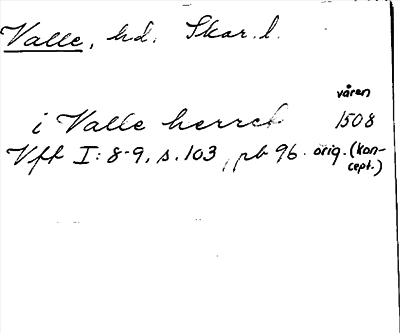 Valle, hd. Skar. l.
våren
i Valle herret 1508
Vfft I: 8-9, s. 103, pb 96. orig. (kon-
cept.)